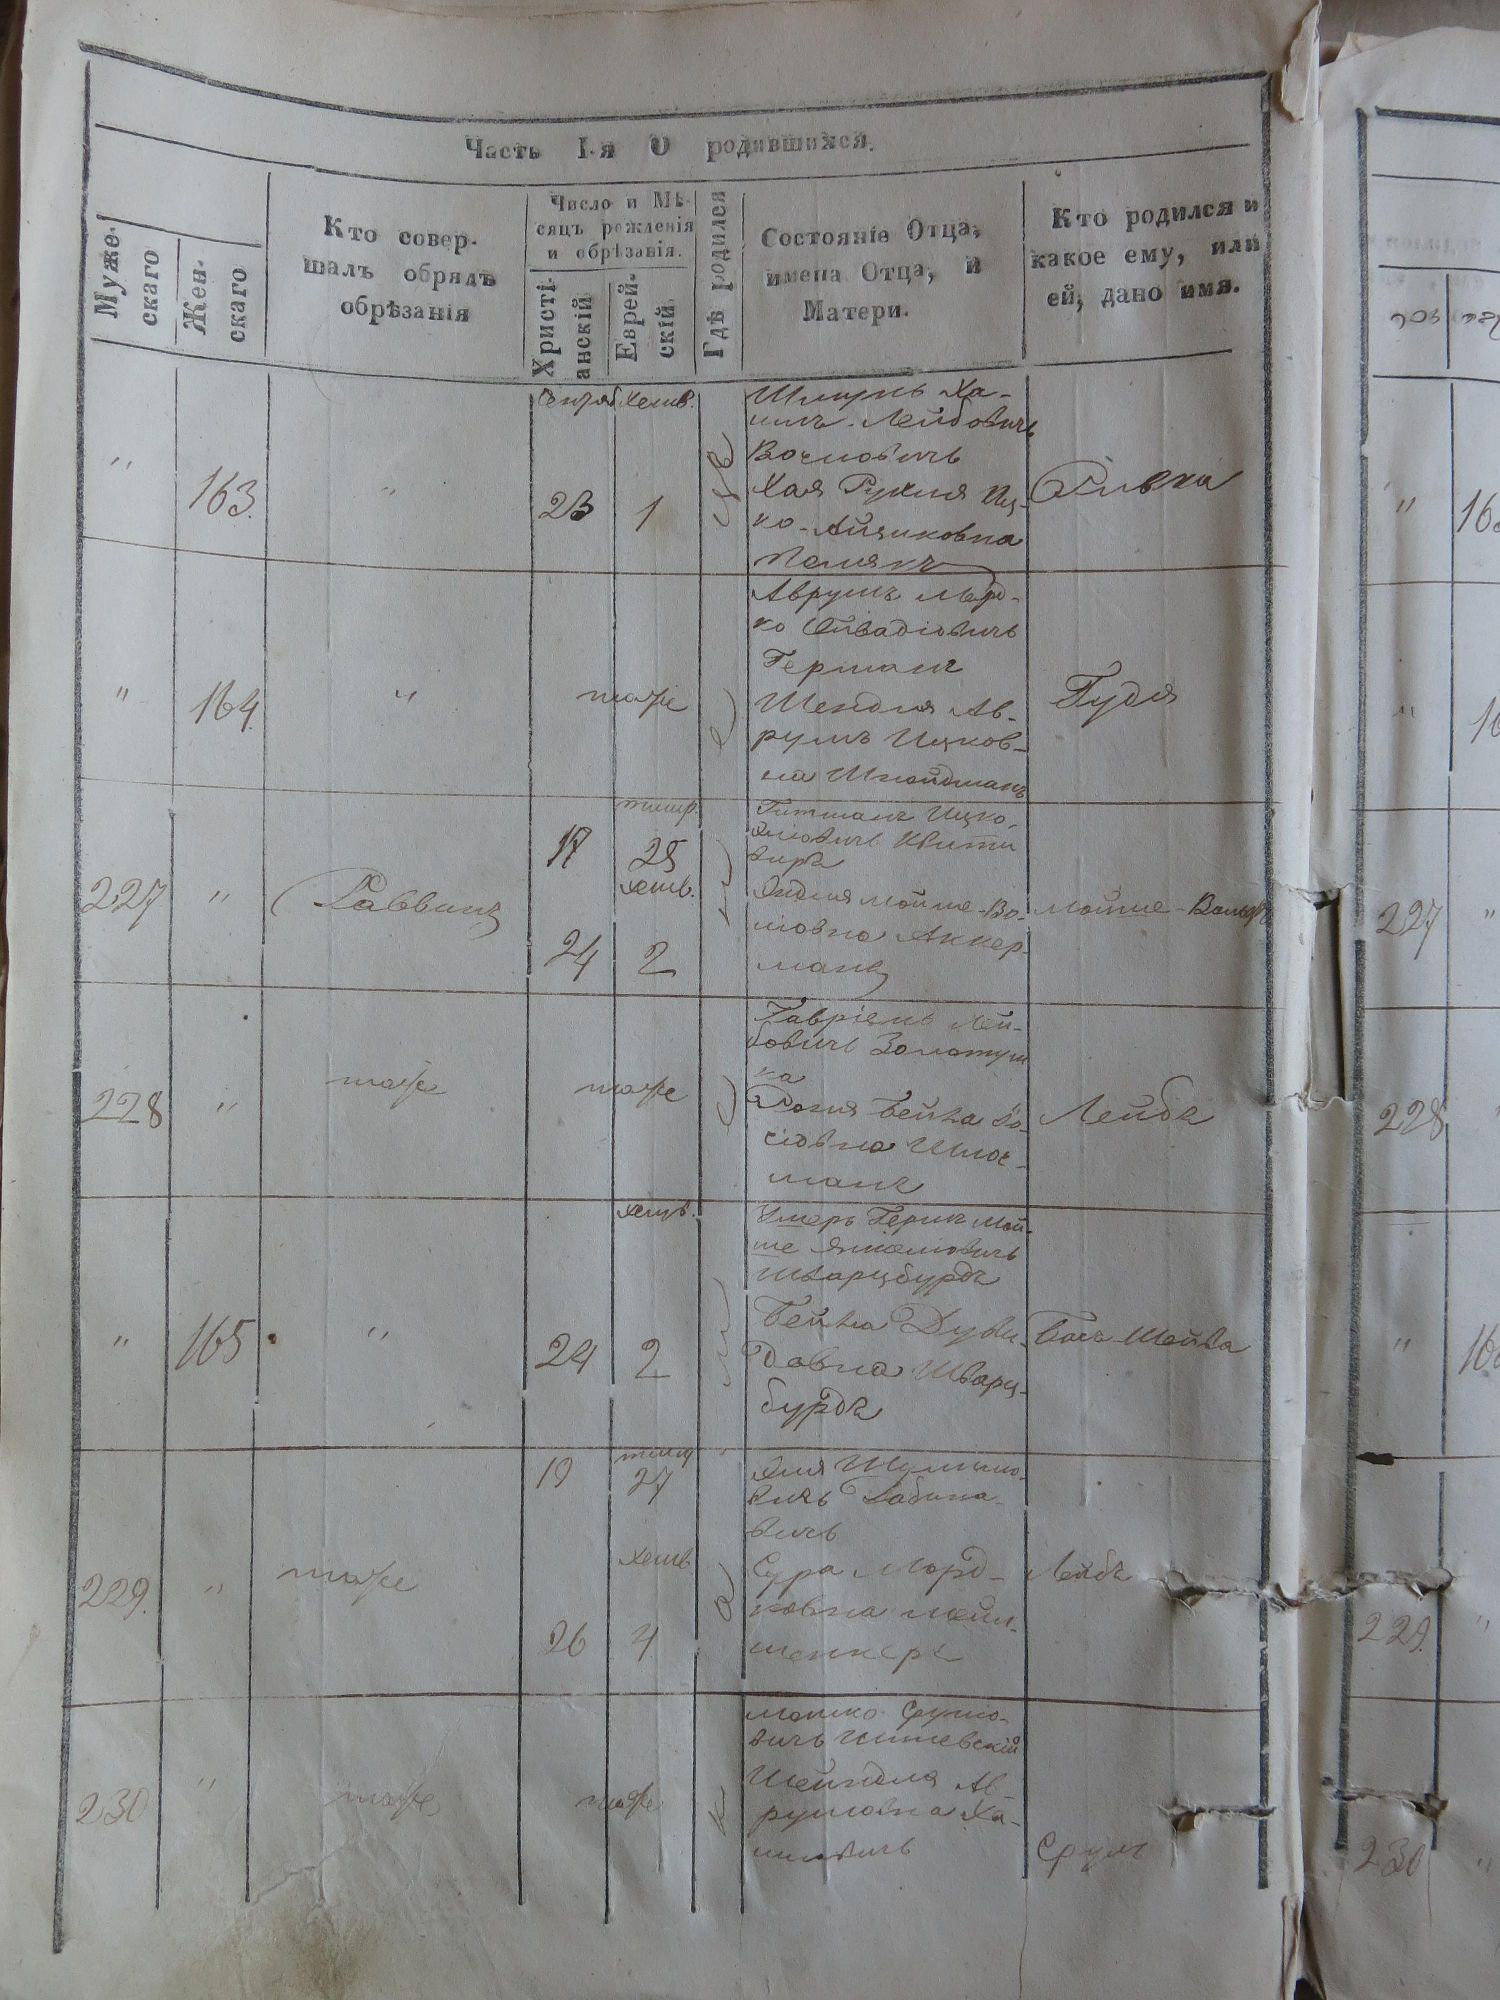 Часть I-я О родившихся.
Муже-
скаго
Жен-
скаго
Кто совер-
шалъ обрядъ
обрѣзанія
Число и Мѣ-
сяцъ рожденія
и обрѣзанія.
Христі-
анскій
Еврей-
скій
Гдѣ родился
Состояніе Отца,
имена Отца, и
Матери.
Кто родился и
какое ему, или
ей, дано имя.
"
163.
"
хешв.
23
1
Шмуль Ха-
имъ Лейбовичъ
Хая Рухля Иц-
ко-Айзиковна
Полякъ
Ривка
"
164.
"
тоже
Аврумъ Морд-
ко
Германъ
Шендля Ав-
румъ Ицков-
на Шнойдманъ
Гудя
227
"
Раввинъ
17
тишр.
25
хешв.
24
2
Гитманъ Ицко-
Эндля Мойше-Во-
ловна Аккер-
манъ
Мойше-Вольфъ
228
"
тоже
тоже
Гавріель Лей-
бовичъ Золотуш
ка
Рохля Бейла Іо-
сіовна Шлос-
манъ
Лейбъ
"
165
"
хешв.
24
2
Умеръ Герш Мой-
ше Янкелiовичъ
Шварцбурдъ
Бейла Дуви-
довна Шварц-
бурдъ
Бась-Шейва
229.
"
тоже
19
тишр
27
хешв
26
4
Эля Шулимо-
вичъ Рабино-
вичъ
Сура Морд-
ковна
Лейбъ
230
"
тоже
тоже
Мошко Срулiо-
вичъ
Шейндля Ав-
румовна Ха-
имовичъ
Срулъ
"
227
"
228
"
"
229.
"
230
"